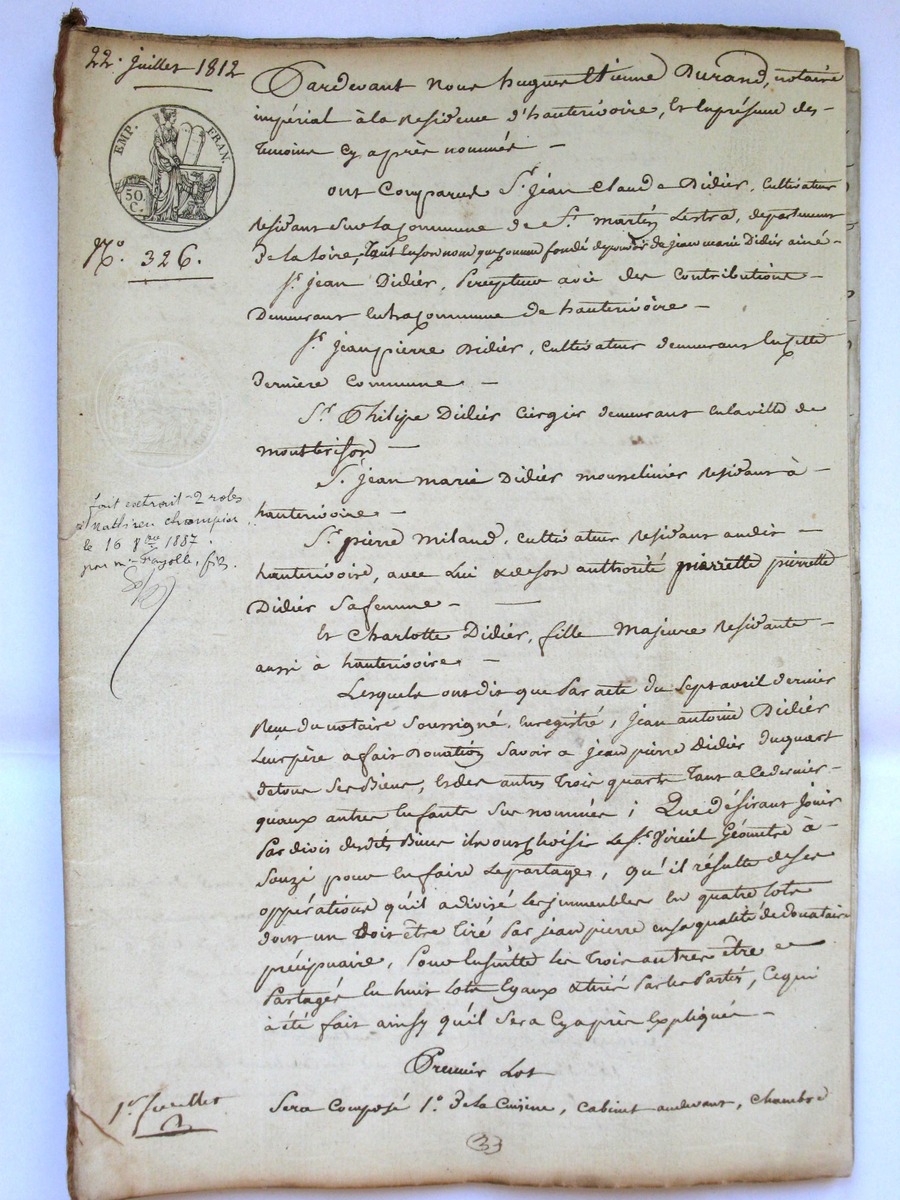 22. juillet 1812
EMP. FRAN.
50. C.
N.o 326.
Pardevant nous hugues Etienne Durand, notaire
impérial à la Residence d'hauterivoire, Et En présence des
Temoins Cy après nommés
ont Comparus Sr. jean Claude Didier, Cultivateur
Residant Sur la Commune de St. martin Lestra, département
de la Loire, Tant En son nom que comme fondé de pouvoir de jean marie Didier ainé
Sr. jean Didier, Percepteur des Contributions
Demeurant En la Commune de hauterivoire
Sr. jean pierre Didier, Cultivateur demeurant En cette
derniere Commune
Sr. Philipe Didier Cirgier demeurant en la ville de
montbrison
Sr. jean marie Didier mousselinier Residant à
hauterivoire
Sr. pierre Miland, Cultivateur Residant audit
hauterivoire, avec Lui & de son authorité pierrette
Didier Sa femme
Et Charlotte Didier, fille Majeure Residante
aussi à hauterivoire
Lesquels ont dit que Par acte du Sept avril dernier
Reçu du notaire Soussigné, Enregistré, jean antoine Didier
Leur père a fait Donation Savoir a jean pierre Didier Du quart
de tous Ses Biens, Et des autres Trois quarts Tant a ce dernier
quaux autres Enfants Sus nommés; Que désirant jouir
Par divis desdits Biens ils ont Choisi Le Sr. Géomètre à
Souzi pour En faire Le partage, qu'il résulte de ses
oppérations qu'il a divisé les immeubles En quatre lots
dont un Doit être tiré Par jean pierre en sa qualité de donataire
précipuaire, Pour Ensuitte les Trois autres être
Partagés En huit lots Egaux & tirés Par les Parties, Ce qui
à été fait ainsy qu'il Sera Cy après Expliqué
Premier Lot
Sera Composé 1.o De la Cuisine, Cabinet au devant, Chambre
fait extrait 2 roles
Mathieu champier
le 16 1887
par me. Fayolle,
1er. feuillet
3